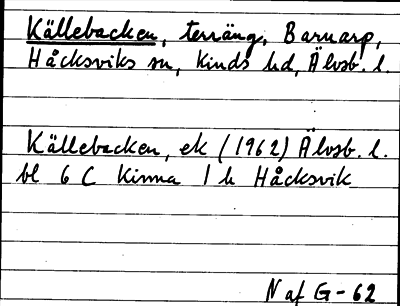 Källebacken, terräng, Barnarp,
Håcksviks sn, Kinds hd, Älvsb. l.
Källebacken, ek (1962) Älvsb. l.
bl 6 C Kinna 1 h Håcksvik
N af G-62